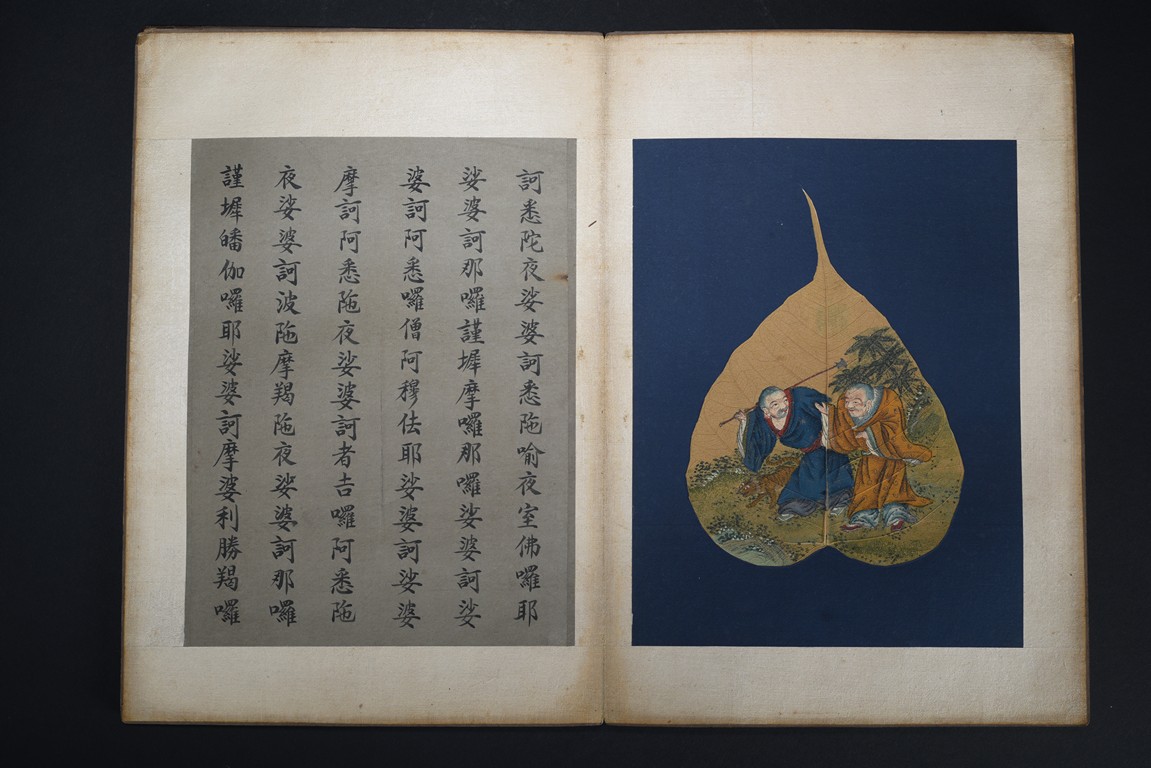 訶悉陀夜娑婆訶悉陁喻夜室佛囉耶
娑婆訶那囉謹墀摩囉那囉娑婆訶娑
婆訶阿悉囉僧阿穆佉耶娑婆訶娑婆
摩訶阿悉陁夜娑婆訶者吉囉阿悉陁
夜娑婆訶波陁摩羯陁夜娑婆訶那囉
謹墀皤伽囉耶娑婆訶摩婆利勝羯囉